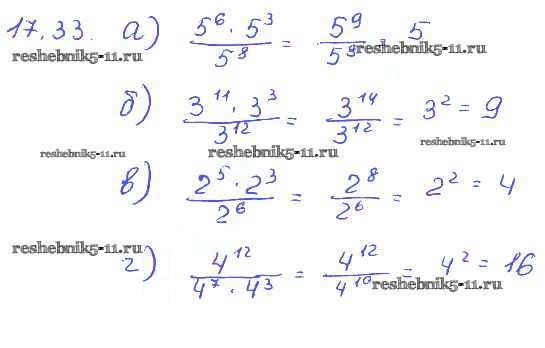 17.33. а) 5⁶ · 5³ / 5⁸ = 5⁹ / 5⁸ 5
reshebnik5-11.ru reshebnik5-11.ru
б) 3¹¹ · 3³ / 3¹² = 3¹⁴ / 3¹² = 3² = 9
reshebnik5-11.ru reshebnik5-11.ru reshebnik5-11.ru
в) 2⁵ · 2³ / 2⁶ = 2⁸ / 2⁶ = 2² = 4
reshebnik5-11.ru
г) 4¹² / 4⁷ · 4³ = 4¹² / 4¹⁰ = 4² = 16
reshebnik5-11.ru